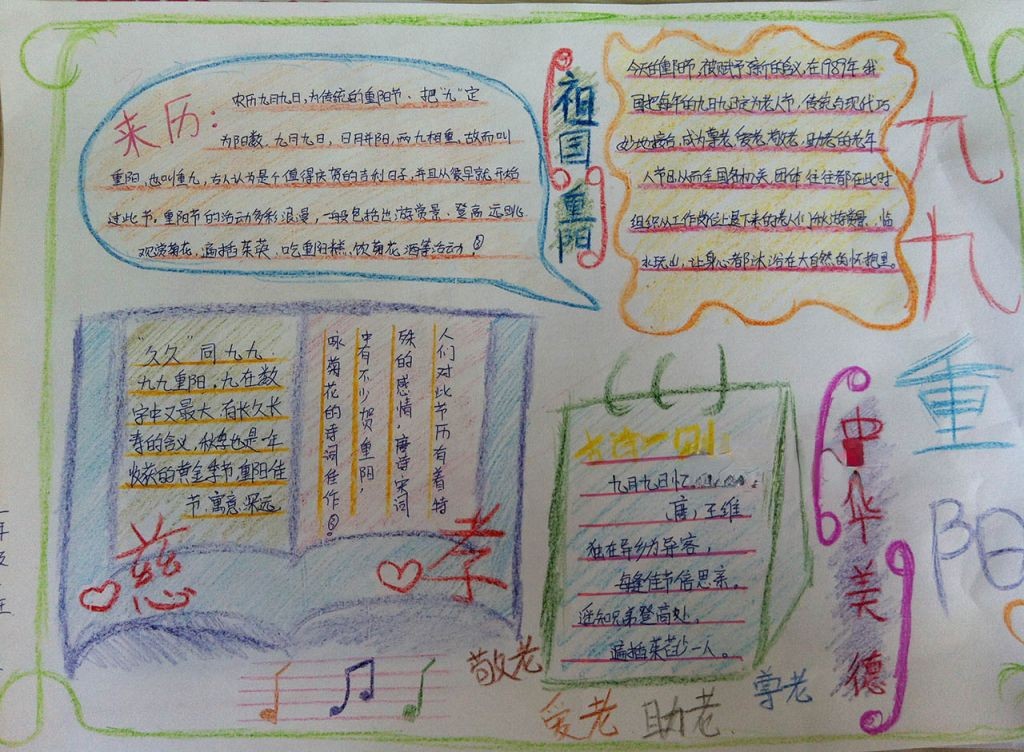 来历:
农历九月九日,为传统的重阳节、把"九"定
为阳数、九月九日,日月并阳,两九相重,故而叫
重阳,也叫重九,古人认为是个值得庆贺的吉利日子,并且从很早就开始
过此节,重阳节的活动多彩浪漫,一般包括出游赏景、登高远眺
观赏菊花,遍插茱萸、吃重阳糕、饮菊花酒等活动!
祖国重阳
今天的重阳节,被赋予了新的含义,在1989年我
国把每年的九月九日定为老人节,传统与现代巧
妙地接合,成为尊老、爱老、敬老、助老的老年
人节日,从而全国各机关团体往往都在此时
组织从工作岗位上退下来的老人们秋游赏景、临
水玩山,让身心都沐浴在大自然的怀抱里。
九九重阳
"久久"同九九
九九重阳,九在数
字中又最大,有长久长
寿的含义,秋季也是一年
收获的黄金季节,重阳佳
节,寓意深远
慈
人们对此节历有着特
殊的感情,唐诗宋词
中有不少贺重阳,
咏菊花的诗词佳作。
孝
古诗一则:
九月九日忆
唐:王维
独在异乡为异客,
每逢佳节倍思亲。
遥知兄弟登高处,
遍插茱萸少一人。
中华美德
敬老
爱老
助老
尊老